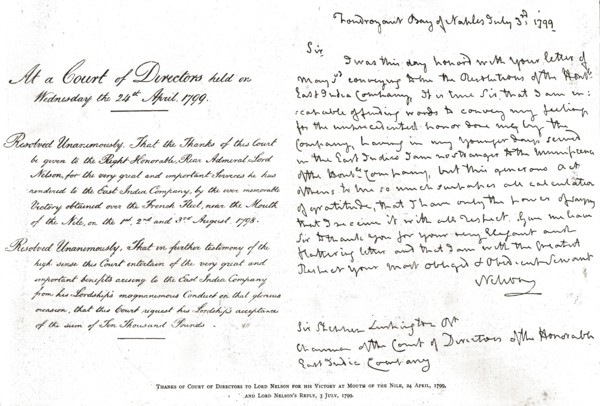 At a Court of Directors held on
Wednesday the 24th April, 1799.
Resolved Unanimously, That the Thanks of this Court
be given to the Right Honorable, Rear Admiral Lord
Nelson, for the very great and important Services he has
rendered to the East India Company, by the ever memorable
Victory obtained over the French Fleet, near the Mouth
of the Nile, on the 1st, 2nd and 3rd August, 1798.
Resolved Unanimously, That in further testimony of the
high sense this Court entertain of the very great and
important benefits arising to the East India Company
from his Lordship's magnanimous Conduct on that glorious
occasion, that this Court request his Lordship's acceptance
of the sum of Ten Thousand Pounds.
Foudroyant Bay of Naples July 3rd, 1799
Sir
I was this day honord with your letter of
May 3d conveying to me the Resolutions of the Honble
East India Company. It is true Sir that I am in=
capable of finding words to convey my feelings
for the unprecedented honor done me by the
Company, having in my younger days served
in the East Indies I am no stranger to the Munificence
of the Honble Company, but this generous act
of theirs to me so much surpasses all calculation
of gratitude, that I have only the power of saying
that I receive it with all respect. Give me leave
Sir to thank you for your very Elegant and
flattering letter and that I am with the Greatest
Respect your Most Obliged & Obedient Servant
Nelson
Sir Stephen Lushington Bt
Chairman of the Court of Directors of the Honorable
East India Company
Thanks of Court of Directors to Lord Nelson for his Victory at Mouth of the Nile, 24 April, 1799,
and Lord Nelson's Reply, 3 July, 1799.